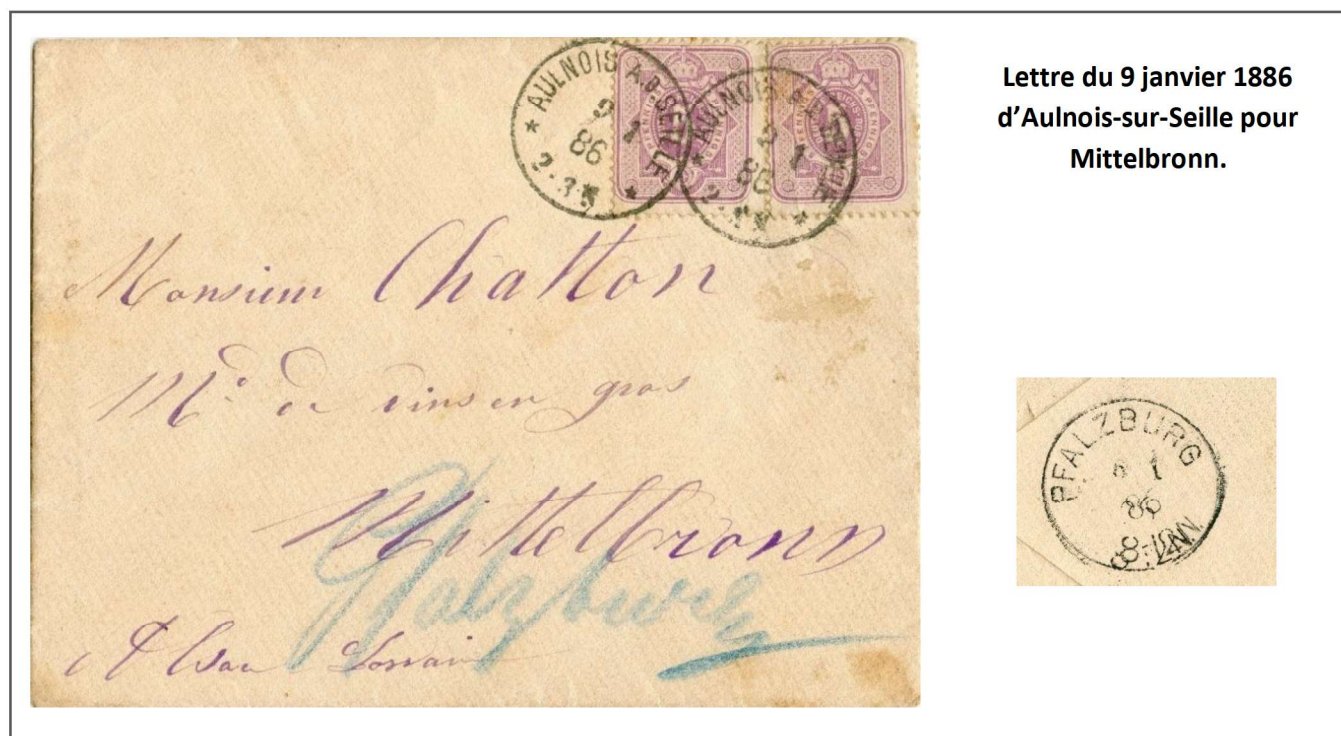 Lettre du 9 janvier 1886
d'Aulnois-sur-Seille pour
Mittelbronn.
* AULNOIS A.D. SEILLE *
1
86
* AULNOIS
1
86
PFENNIG
Monsieur Chatton
Md. de vins en gros
Mittelbronn
Pfalzburg
Alsace Lorraine
PFALZBURG
1
86